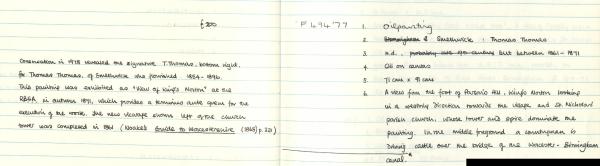 £200
Conservation in 1978 revealed the signature T. Thomas. bottom right.
for Thomas Thomas, of Smethwick who flourished 1854 - 1896.
This painting was exhibited as "View of King's Norton" at the
RBSA in autumn 1871, which provides a terminus ante quem for the
execution of the work. The new vicarage shown left of the church
tower was completed in 1861 (Noakes Guide to Worcestershire (1868) p. 221)
F494'77
1. Oilpainting
2. Birmingham & Smethwick : Thomas Thomas
3. n.d. probably but between 1861 - 1871
4. Oil on canvas
5. 71 cms x 91 cms
6. A view from the foot of Parsons Hill, King's Norton looking
in a westerly direction towards the village and St. Nicholas'
parish church, whose tower and spire dominate the
painting. In the middle foreground a countryman is
driving cattle over the bridge of the Worcester - Birmingham
canal.